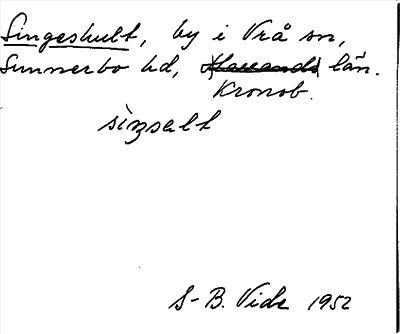 Singeshult, by i Vrå sn,
Sunnerbo hd, Hallands län.
Kronob.
sìŋsalt
S-B. Vide 1952